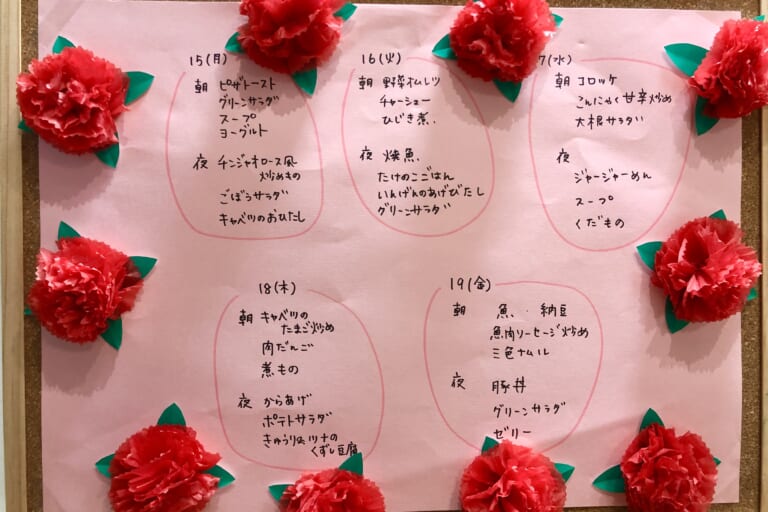 15(月)
朝 ピザトースト
グリーンサラダ
スープ
ヨーグルト
夜 チンジャオロース風
炒めもの
ごぼうサラダ
キャベツのおひたし
16(火)
朝 野菜オムレツ
チャーシュー
ひじき煮
夜 焼魚
たけのこごはん
いんげんのあげびたし
グリーンサラダ
7(水)
朝 コロッケ
こんにゃく甘辛炒め
大根サラダ
夜
ジャージャーめん
スープ
くだもの
18(木)
朝 キャベツの
たまご炒め
肉だんご
煮もの
夜 からあげ
ポテトサラダ
きゅうりとツナの
くずし豆腐
19(金)
朝 魚 納豆
魚肉ソーセージ炒め
三色ナムル
夜 豚丼
グリーンサラダ
ゼリー